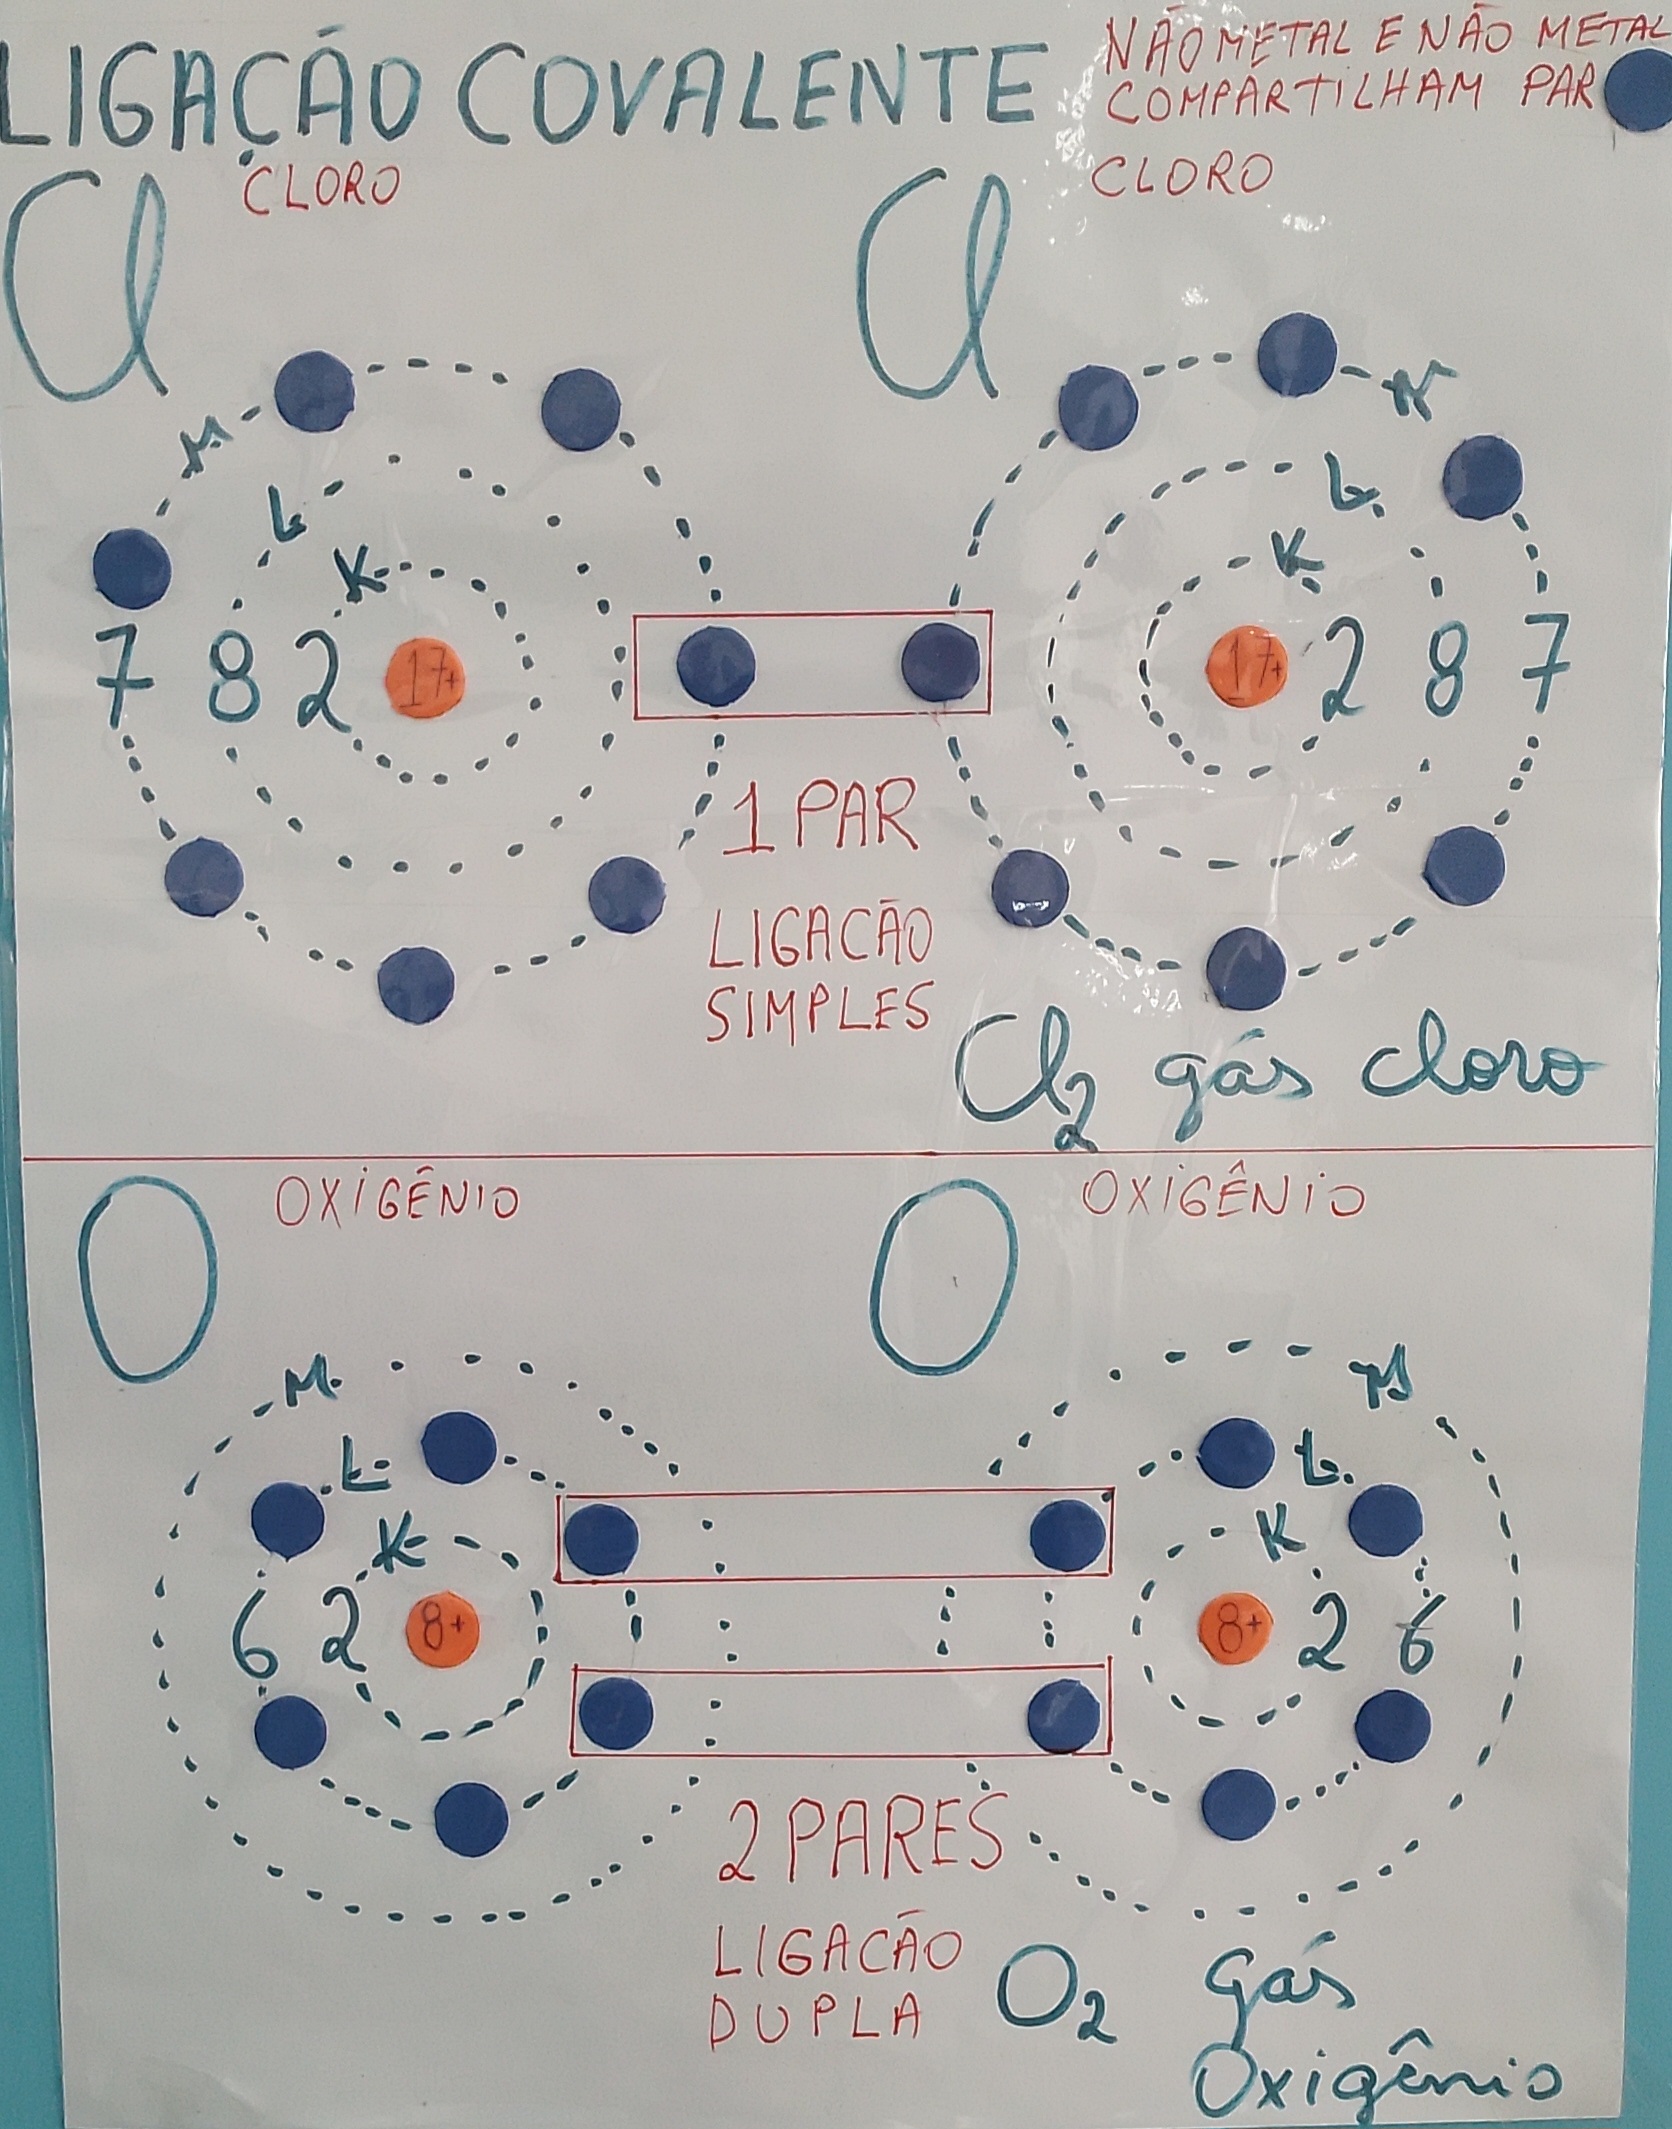 LIGAÇÃO COVALENTE
NÃO METAL E NÃO METAL
COMPARTILHAM PAR
CLORO
CLORO
Cl
Cl
M
L
K
7 8 2 17+
M
L
K
17+ 2 8 7
1 PAR
LIGACÃO
SIMPLES
Cl2 gás cloro
OXIGÊNIO
OXIGÊNIO
O
O
M
L
K
6 2 8+
M
L
K
8+ 2 6
2 PARES
LIGACÃO
DUPLA
O2 gás
Oxigênio